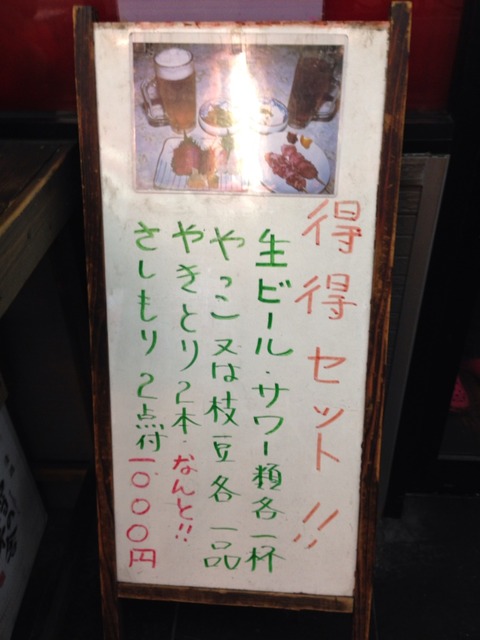 得得セット!!
生ビール・サワー類各一杯
やっこ又は枝豆各一品
やきとり2本・なんと!!
さしもり2点付一〇〇〇円